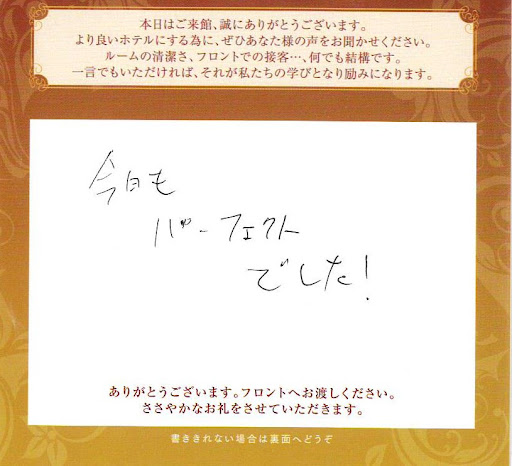 本日はご来館、誠にありがとうございます。
より良いホテルにする為に、ぜひあなた様の声をお聞かせください。
ルームの清潔さ、フロントでの接客…、何でも結構です。
一言でもいただければ、それが私たちの学びとなり励みになります。
今日も
パーフェクト
でした!
ありがとうございます。フロントへお渡しください。
ささやかなお礼をさせていただきます。
書ききれない場合は裏面へどうぞ